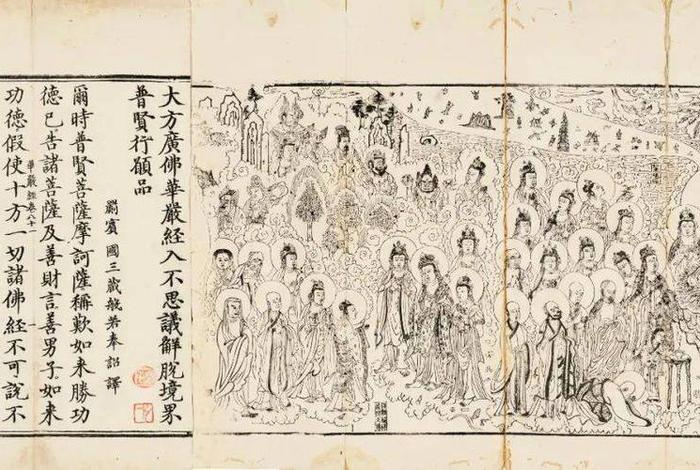 大方廣佛華嚴經入不思議解脫境界
普賢行願品
罽賓國三藏般若奉詔譯
爾時普賢菩薩摩訶薩稱歎如來勝功
德已告諸菩薩及善財言善男子如來
華嚴經卷八十一
功德假使十方一切諸佛經不可說不